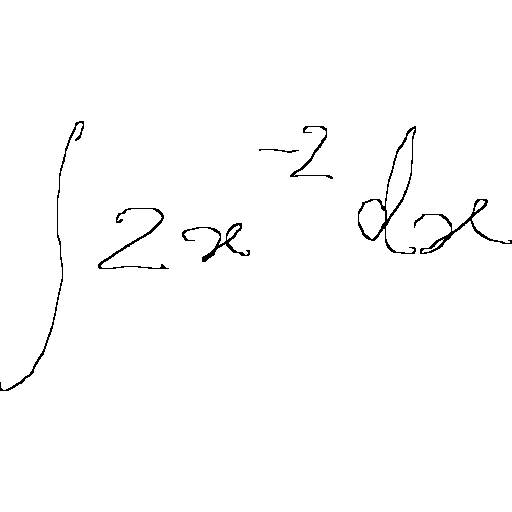 ∫ 2x⁻² dx